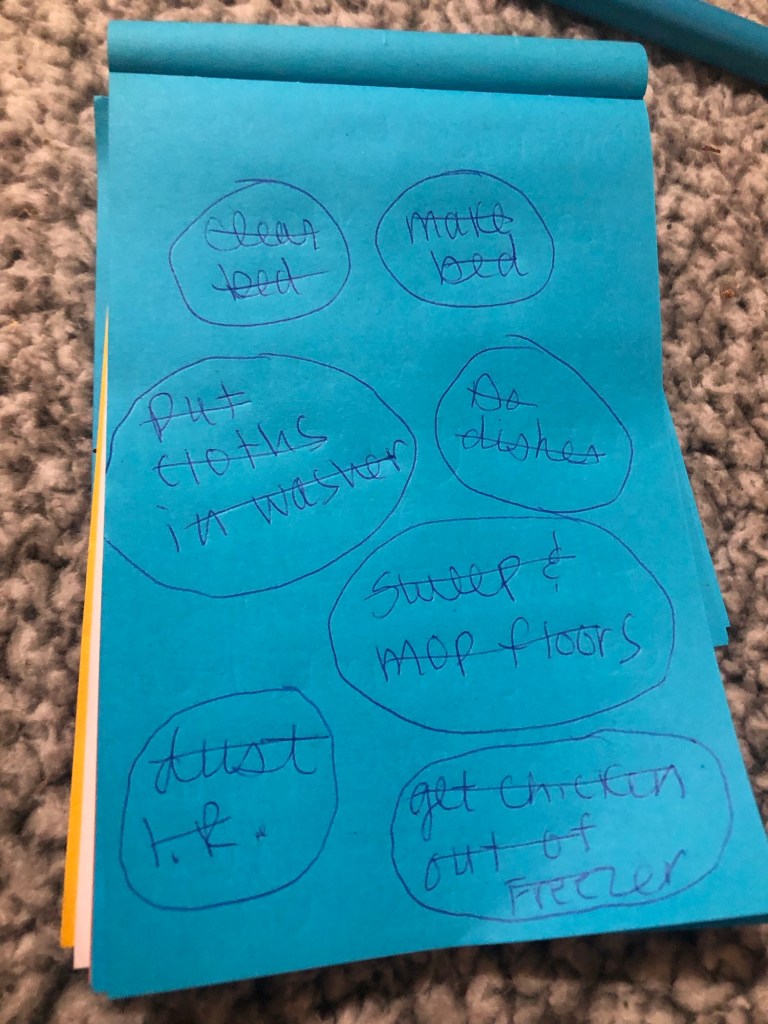 clear
bed
make
bed
Put
cloths
in washer
Do
dishes
sweep &
mop floors
dust
l.R.
get chicken
out of
Freezer